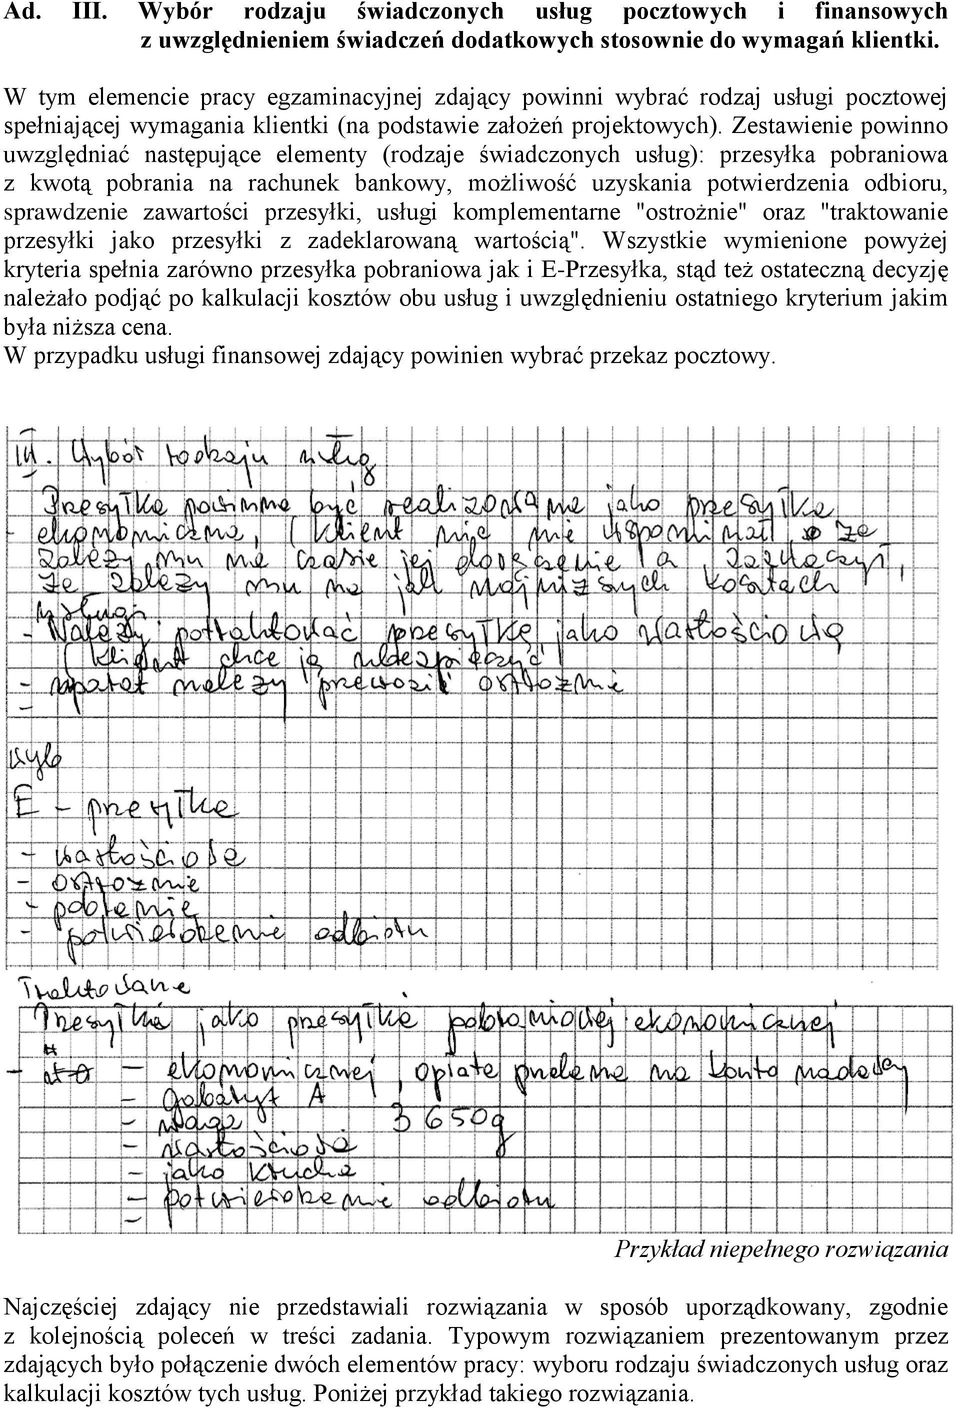 Ad. III. Wybór rodzaju świadczonych usług pocztowych i finansowych
z uwzględnieniem świadczeń dodatkowych stosownie do wymagań klientki.
W tym elemencie pracy egzaminacyjnej zdający powinni wybrać rodzaj usługi pocztowej
spełniającej wymagania klientki (na podstawie założeń projektowych). Zestawienie powinno
uwzględniać następujące elementy (rodzaje świadczonych usług): przesyłka pobraniowa
z kwotą pobrania na rachunek bankowy, możliwość uzyskania potwierdzenia odbioru,
sprawdzenie zawartości przesyłki, usługi komplementarne "ostrożnie" oraz "traktowanie
przesyłki jako przesyłki z zadeklarowaną wartością". Wszystkie wymienione powyżej
kryteria spełnia zarówno przesyłka pobraniowa jak i E-Przesyłka, stąd też ostateczną decyzję
należało podjąć po kalkulacji kosztów obu usług i uwzględnieniu ostatniego kryterium jakim
była niższa cena.
W przypadku usługi finansowej zdający powinien wybrać przekaz pocztowy.
III. Wybór rodzaju usług
Przesyłka powinna być realizowana jako przesyłka
- ekonomiczna, (klient nic nie wspominał o że
zależy mu na czasie jej doręczenia, zaznaczył,
że zależy mu na jak najniższych kosztach
usługi
- Należy potraktować przesyłkę jako wartościową
(klient chce ją ubezpieczyć)
- aparat należy przewozić ostrożnie
-
wyb
E - przesyłka
- wartościowa
- ostrożnie
- pobranie
- potwierdzenie odbioru
Traktowana
Przesyłka jako przesyłka pobraniowej ekonomicznej
- - ekonomicznej, opłata przelana na konto nadawcy
- gabaryt A
- waga 3 650g
- wartościowa
- jako krucha
- potwierdzenie odbioru
-
Przykład niepełnego rozwiązania
Najczęściej zdający nie przedstawiali rozwiązania w sposób uporządkowany, zgodnie
z kolejnością poleceń w treści zadania. Typowym rozwiązaniem prezentowanym przez
zdających było połączenie dwóch elementów pracy: wyboru rodzaju świadczonych usług oraz
kalkulacji kosztów tych usług. Poniżej przykład takiego rozwiązania.